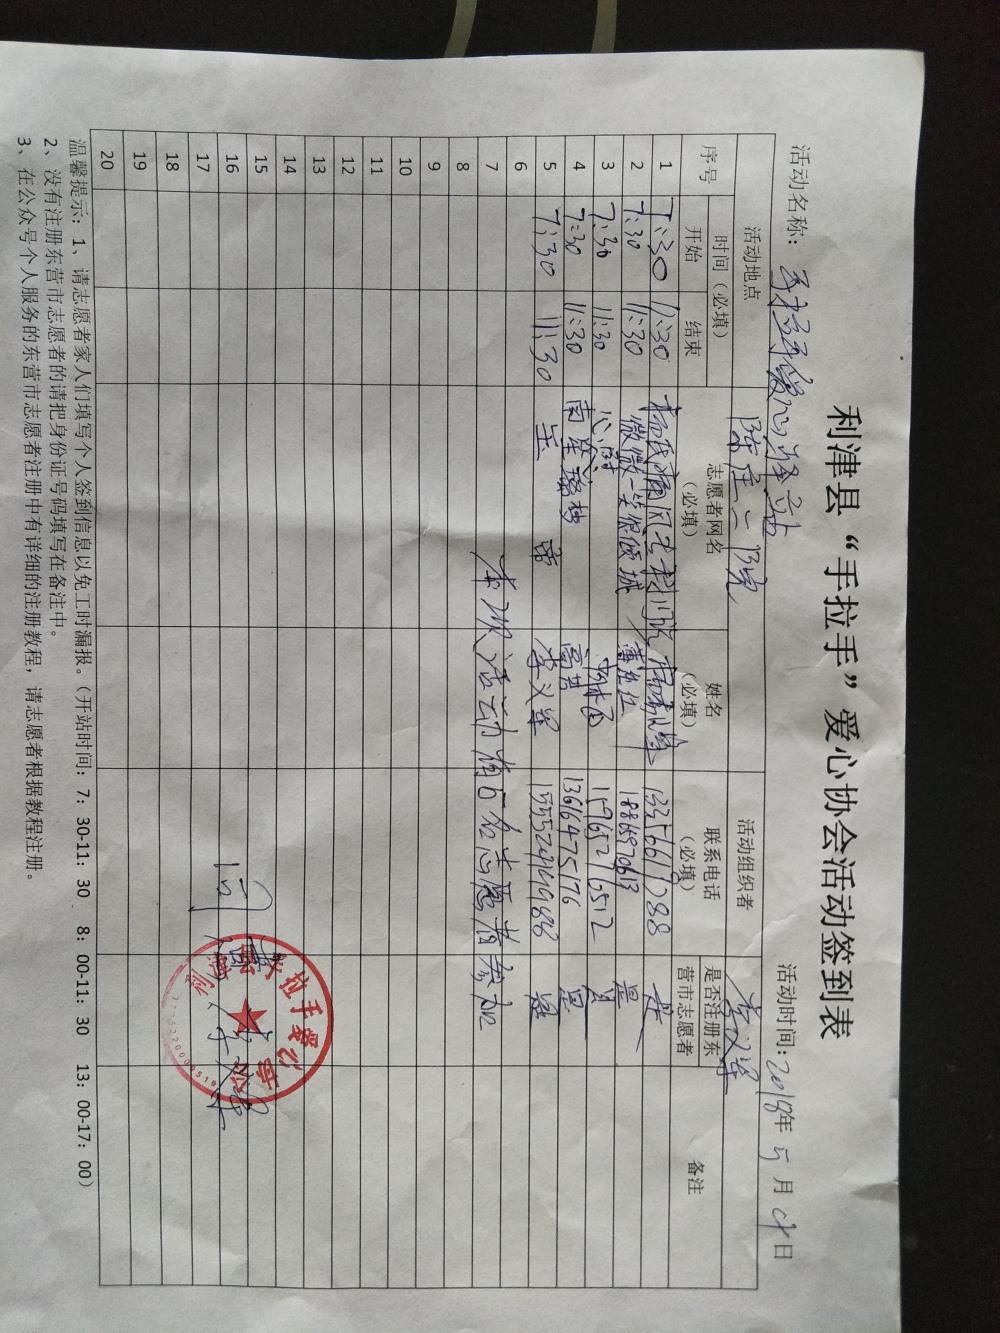 利津县“手拉手”爱心协会活动签到表
活动名称：手拉手爱心驿站 活动时间：2018年 5 月 日
活动地点 陈庄二院 活动组织者 李义军
序号 时间（必填） 志愿者网名（必填） 姓名（必填） 联系电话（必填） 是否注册东营市志愿者 备注
开始 结束
1 7:30 11:30 13356619088 是
2 7:30 11:30 微微一笑很倾城 薄 18865970613 是
3 7:30 11:30 心雨 15965276512 是
4 7:30 11:30 南 梦 高 13616475176 是
5 7:30 11:30 玉 帝 李义军 15552449988 是
6
7 本次活动有5名志愿者参加
8
9
10
11
12
13
14
15
16
17
18
19
20
同意
手拉手爱心
温馨提示：1、请志愿者家人们填写个人签到信息以免工时漏报。（开站时间：7：30-11：30 8：00-11：30 13：00-17：00）
2、没有注册东营市志愿者的请把身份证号码填写在备注中。
3、在公众号个人服务的东营市志愿者注册中有详细的注册教程，请志愿者根据教程注册。